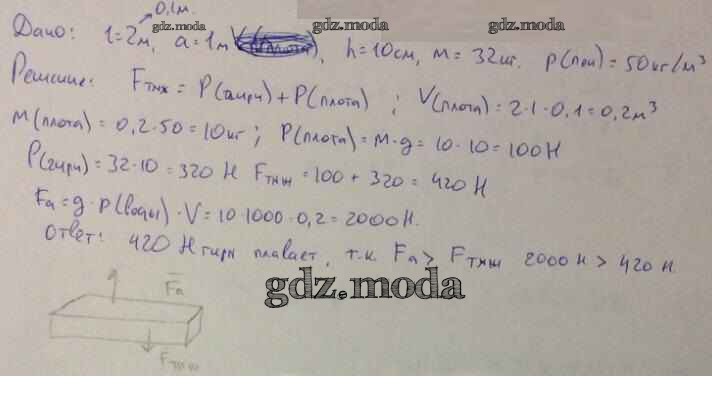 0,1м.
Дано: l=2м, a=1м, h=10см, m=32кг. ρ(пен)=50кг/м³
gdz.moda gdz.moda gdz.moda
Решение: Fтяж = P(гири)+P(плота) ; V(плота)=2·1·0,1=0,2м³
m(плота)=0,2·50=10кг; P(плота)=m·g=10·10=100Н
P(гири)=32·10=320 Н Fтяж=100+320=420 Н
Fa=g·ρ(воды)·V=10·1000·0,2=2000Н.
Ответ: 420 Н гири плавает, т.к. Fa> Fтяж 2000Н>420Н.
gdz.moda
Fa
Fтяж